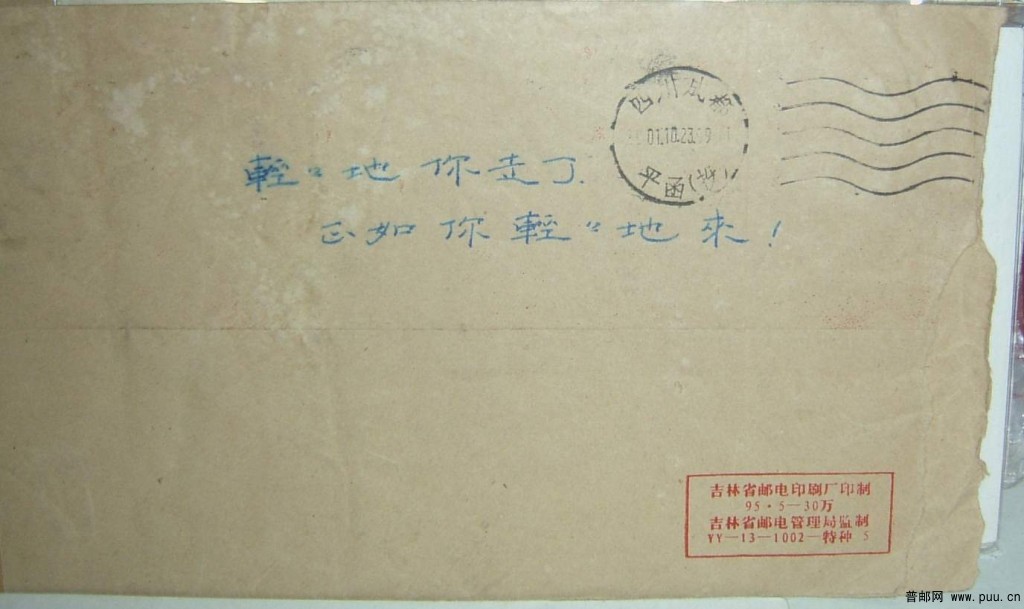 四川成都
01.10.23.19
平函(落)
輕〃地你走了.
正如你輕〃地來!
吉林省邮电印刷厂印制
95·5—30万
吉林省邮电管理局监制
YY—13—1002—特种 5
普邮网 www.puu.cn